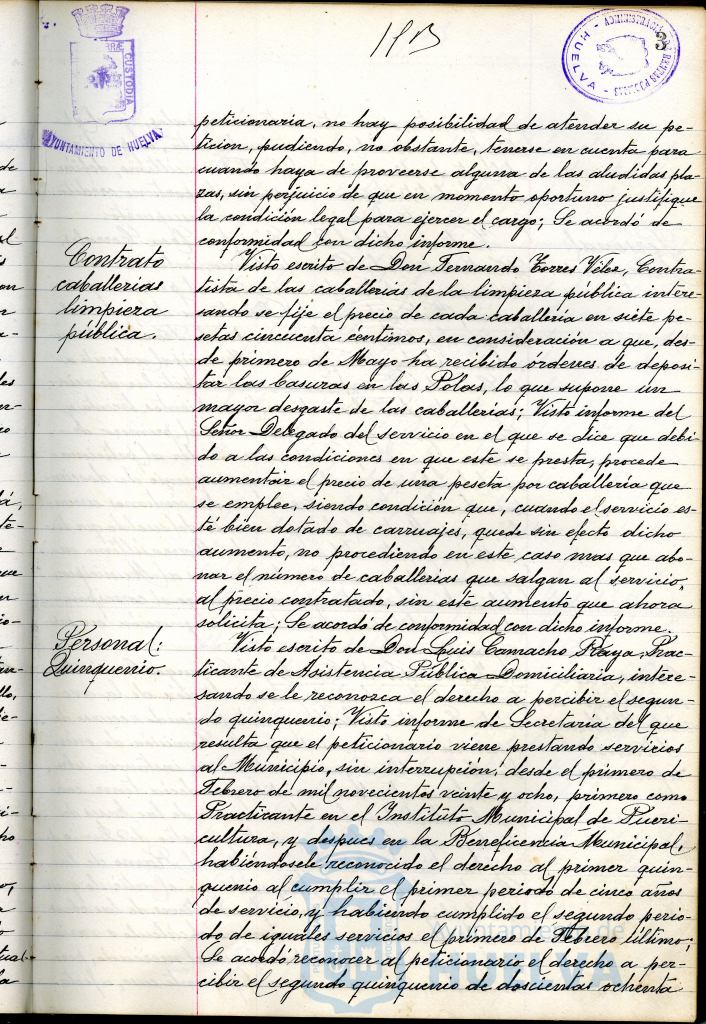 CUSTODIA
AYUNTAMIENTO DE HUELVA
HUELVA
3
peticionaria, no hay posibilidad de atender su pe-
ticion, pudiendo, no obstante, tenerse en cuenta para
cuando haya de proveerse alguna de las aludidas pla-
zas, sin perjuicio de que en momento oportuno justifique
la condición legal para ejercer el cargo; Se acordó de
conformidad con dicho informe.
Contrato
caballerias
limpieza
pública.
Visto escrito de Don Fernando Torres Vélez, Contra-
tista de las caballerias de la limpieza pública intere-
sando se fije el precio de cada caballería en siete pe-
setas cincuenta céntimos, en consideración a que, des-
de primero de Mayo ha recibido órdenes de deposi-
tar las basuras en las Polas, lo que supone un
mayor desgaste de las caballerías; Visto informe del
Señor Delegado del servicio en el que se dice que debi-
do a las condiciones en que este se presta, procede
aumentar el precio de una peseta por caballería que
se emplee, siendo condición que, cuando el servicio es-
té bien dotado de carruajes, quede sin efecto dicho
aumento, no procediendo en este caso mas que abo-
nar el número de caballerias que salgan al servicio,
al precio contratado, sin este aumento que ahora
solicita; Se acordó de conformidad con dicho informe.
Personal:
Quinquenio.
Visto escrito de Don Luis Camacho Playa, Prac-
ticante de Asistencia Pública Domiciliaria, intere-
sando se le reconozca el derecho a percibir el segun-
do quinquenio; Visto informe de Secretaría del que
resulta que el peticionario viene prestando servicios
al Municipio, sin interrupción, desde el primero de
Febrero de mil novecientos veinte y ocho, primero como
Practicante en el Instituto Municipal de Pueri-
cultura, y despues en la Beneficencia Municipal,
habiéndosele reconocido el derecho al primer quin-
quenio al cumplir el primer periodo de cinco años
de servicio, y habiendo cumplido el segundo perio-
do de iguales servicios el primero de Febrero último;
Se acordó reconocer al peticionario el derecho a per-
cibir el segundo quinquenio de doscientas ochenta
Ayuntamiento de
HUELVA